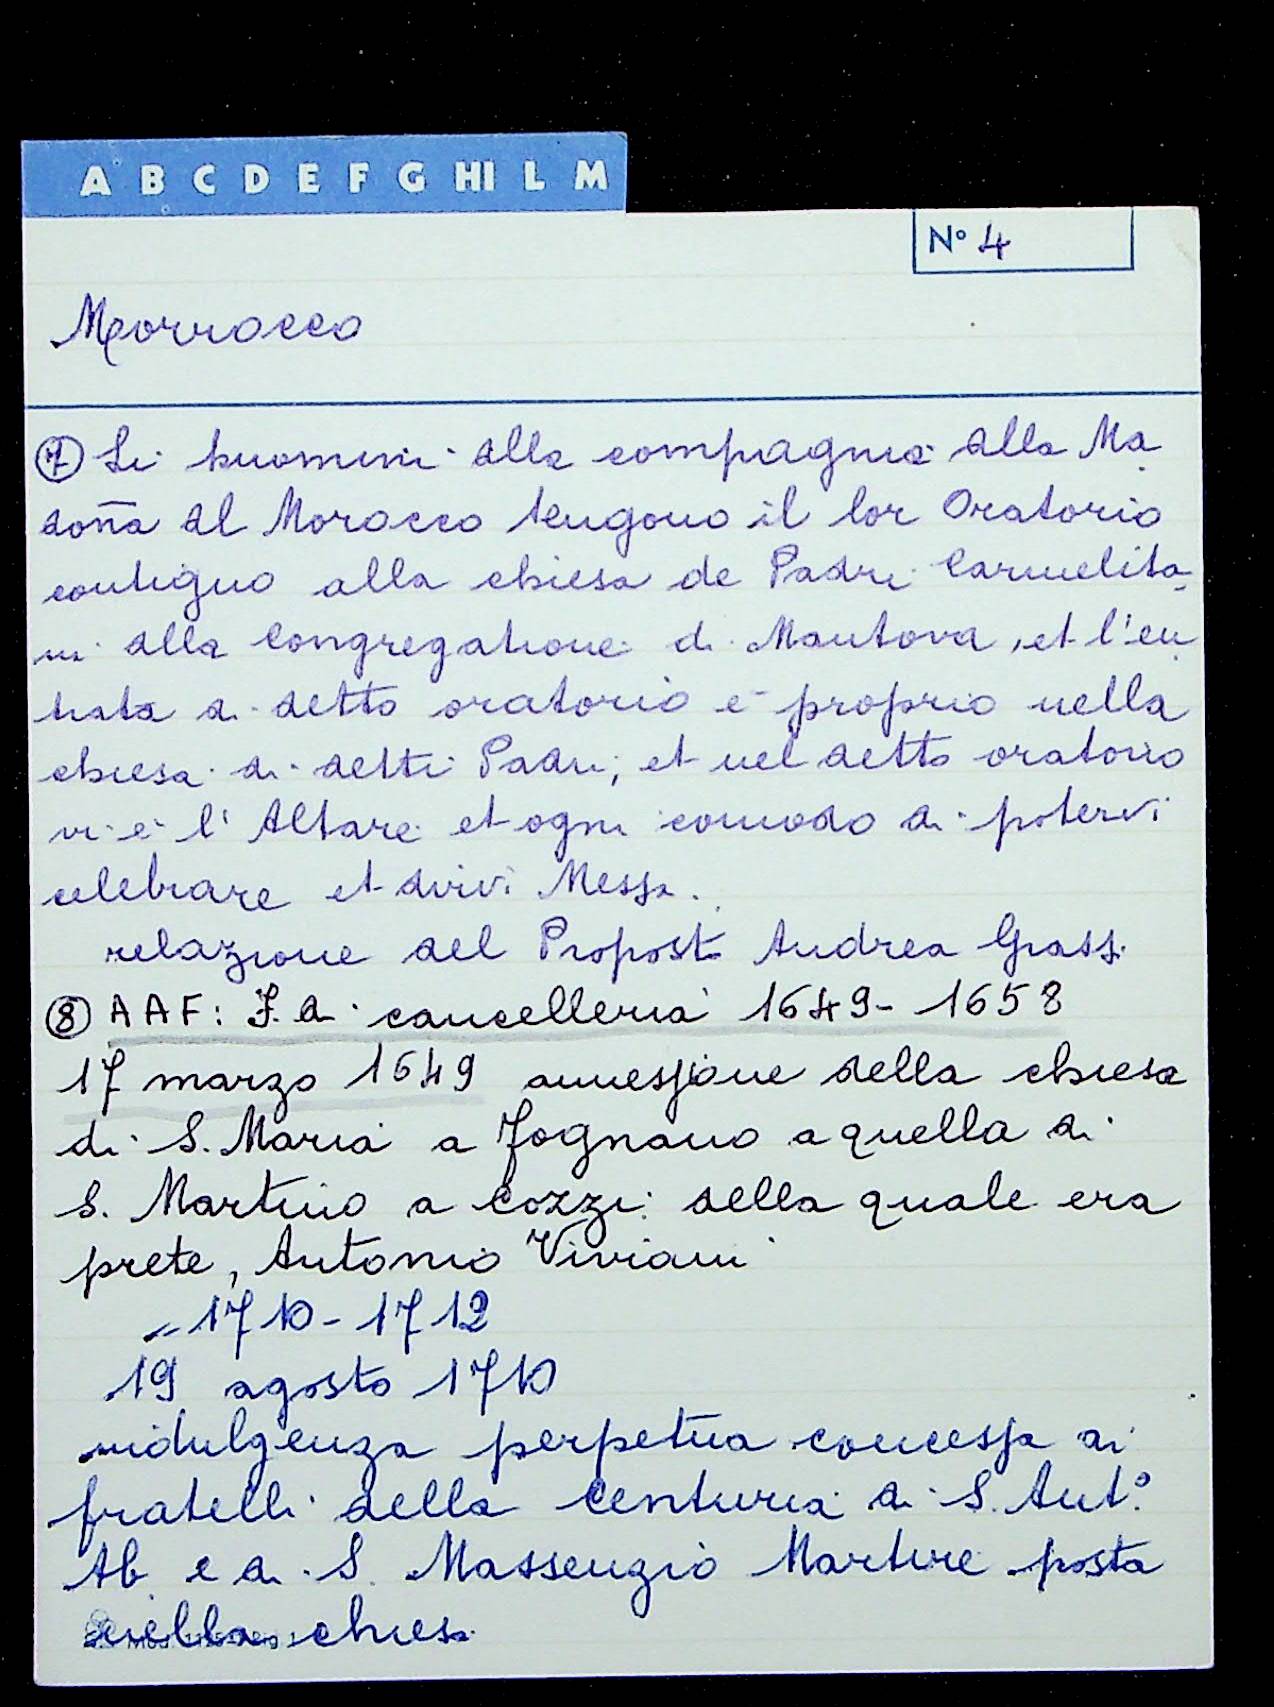 A B C D E F G HI L M
N° 4
Morrocco
⑦ Li huomini della compagnia della Ma
donna del Morocco tengono il lor Oratorio
contiguo alla chiesa de Padri Carmelita
ni della Congregatione di Mantova, et l'en
trata di detto oratorio è proprio nella
chiesa di detti Padri, et nel detto oratorio
vi è l'Altare et ogni comodo di potervi
celebrare et dirvi Messa.
relazione del Propost. Andrea Grassi
⑧ AAF: F. di cancelleria 1649-1658
17 marzo 1649 annessione della chiesa
di S. Maria a Fognano a quella di
S. Martino a Cozzi della quale era
prete, Antonio Viviani
" 1710-1712
19 agosto 1710
indulgenza perpetua concessa ai
fratelli della centuria di S. Ant.°
Ab. e di S. Massenzio Martire posta
nella chiesa